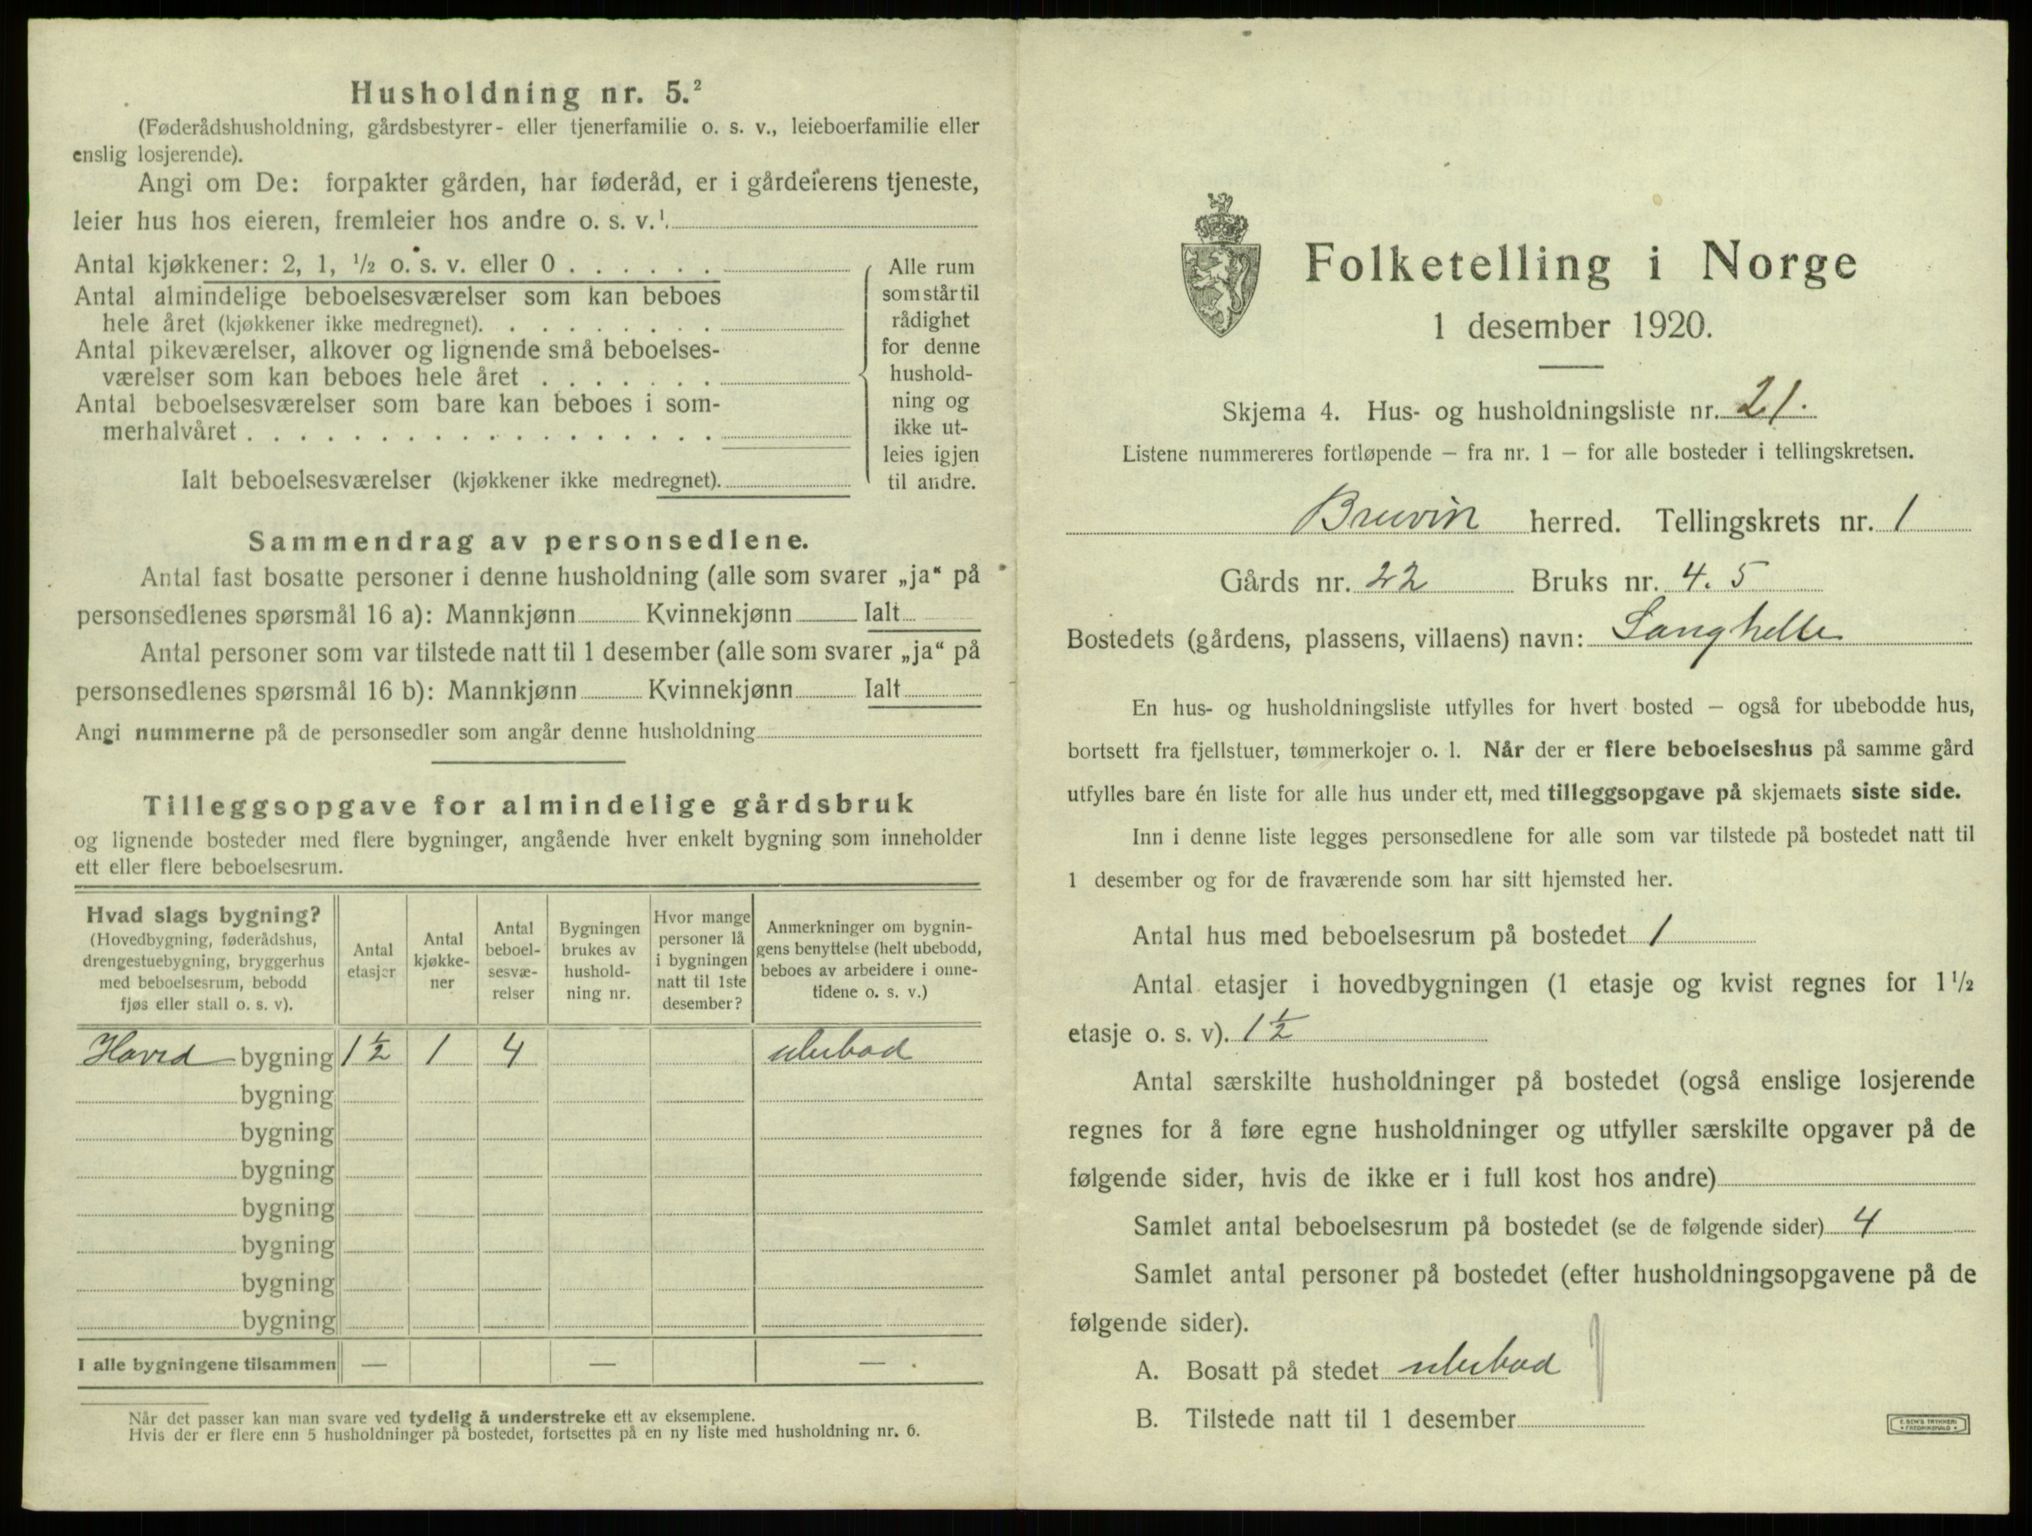 Husholdning nr. 5.²
(Føderådshusholdning, gårdsbestyrer- eller tjenerfamilie o. s. v., leieboerfamilie eller
enslig losjerende).
Angi om De: forpakter gården, har føderåd, er i gårdeierens tjeneste,
leier hus hos eieren, fremleier hos andre o. s. v.¹
Antal kjøkkener: 2, 1, ½ o. s. v. eller 0 . . . . . .
Antal almindelige beboelsesværelser som kan beboes
hele året (kjøkkener ikke medregnet). . . . . . . . .
Antal pikeværelser, alkover og lignende små beboelses-
værelser som kan beboes hele året . . . . . . .
Antal beboelsesværelser som bare kan beboes i som-
merhalvåret . . . . . . . . . . . . . . . . . .
Ialt beboelsesværelser (kjøkkener ikke medregnet).
Alle rum
som står til
rådighet
for denne
hushold-
ning og
ikke ut-
leies igjen
til andre.
Sammendrag av personsedlene.
Antal fast bosatte personer i denne husholdning (alle som svarer „ja“ på
personsedlenes spørsmål 16 a): Mannkjønn Kvinnekjønn Ialt
Antal personer som var tilstede natt til 1 desember (alle som svarer „ja“ på
personsedlenes spørsmål 16 b): Mannkjønn Kvinnekjønn Ialt
Angi nummerne på de personsedler som angår denne husholdning
Tilleggsopgave for almindelige gårdsbruk
og lignende bosteder med flere bygninger, angående hver enkelt bygning som inneholder
ett eller flere beboelsesrum.
Hvad slags bygning?
(Hovedbygning, føderådshus,
drengestuebygning, bryggerhus
med beboelsesrum, bebodd
fjøs eller stall o. s. v).
Antal
etasjer
Antal
kjøkke-
ner
Antal
beboel-
sesvæ-
relser
Bygningen
brukes av
hushold-
ning nr.
Hvor mange
personer lå
i bygningen
natt til 1ste
desember?
Anmerkninger om bygnin-
gens benyttelse (helt ubebodd,
beboes av arbeidere i onne-
tidene o. s. v.)
Hoved bygning 1½ 1 4 ubebod
bygning
bygning
bygning
bygning
bygning
bygning
bygning
I alle bygningene tilsammen — — —
Når det passer kan man svare ved tydelig å understreke ett av eksemplene.
Hvis der er flere enn 5 husholdninger på bostedet, fortsettes på en ny liste med husholdning nr. 6.
Folketelling i Norge
1 desember 1920.
Skjema 4. Hus- og husholdningsliste nr. 21.
Listene nummereres fortløpende — fra nr. 1 — for alle bosteder i tellingskretsen.
Bruvin herred. Tellingskrets nr. 1
Gårds nr. 22 Bruks nr. 4. 5
Bostedets (gårdens, plassens, villaens) navn: Langhelle
En hus- og husholdningsliste utfylles for hvert bosted — også for ubebodde hus,
bortsett fra fjellstuer, tømmerkojer o. l. Når der er flere beboelseshus på samme gård
utfylles bare én liste for alle hus under ett, med tilleggsopgave på skjemaets siste side.
Inn i denne liste legges personsedlene for alle som var tilstede på bostedet natt til
1 desember og for de fraværende som har sitt hjemsted her.
Antal hus med beboelsesrum på bostedet 1
Antal etasjer i hovedbygningen (1 etasje og kvist regnes for 1½
etasje o. s. v). 1½
Antal særskilte husholdninger på bostedet (også enslige losjerende
regnes for å føre egne husholdninger og utfyller særskilte opgaver på de
følgende sider, hvis de ikke er i full kost hos andre)
Samlet antal beboelsesrum på bostedet (se de følgende sider) 4
Samlet antal personer på bostedet (efter husholdningsopgavene på de
følgende sider).
A. Bosatt på stedet ubebod
B. Tilstede natt til 1 desember